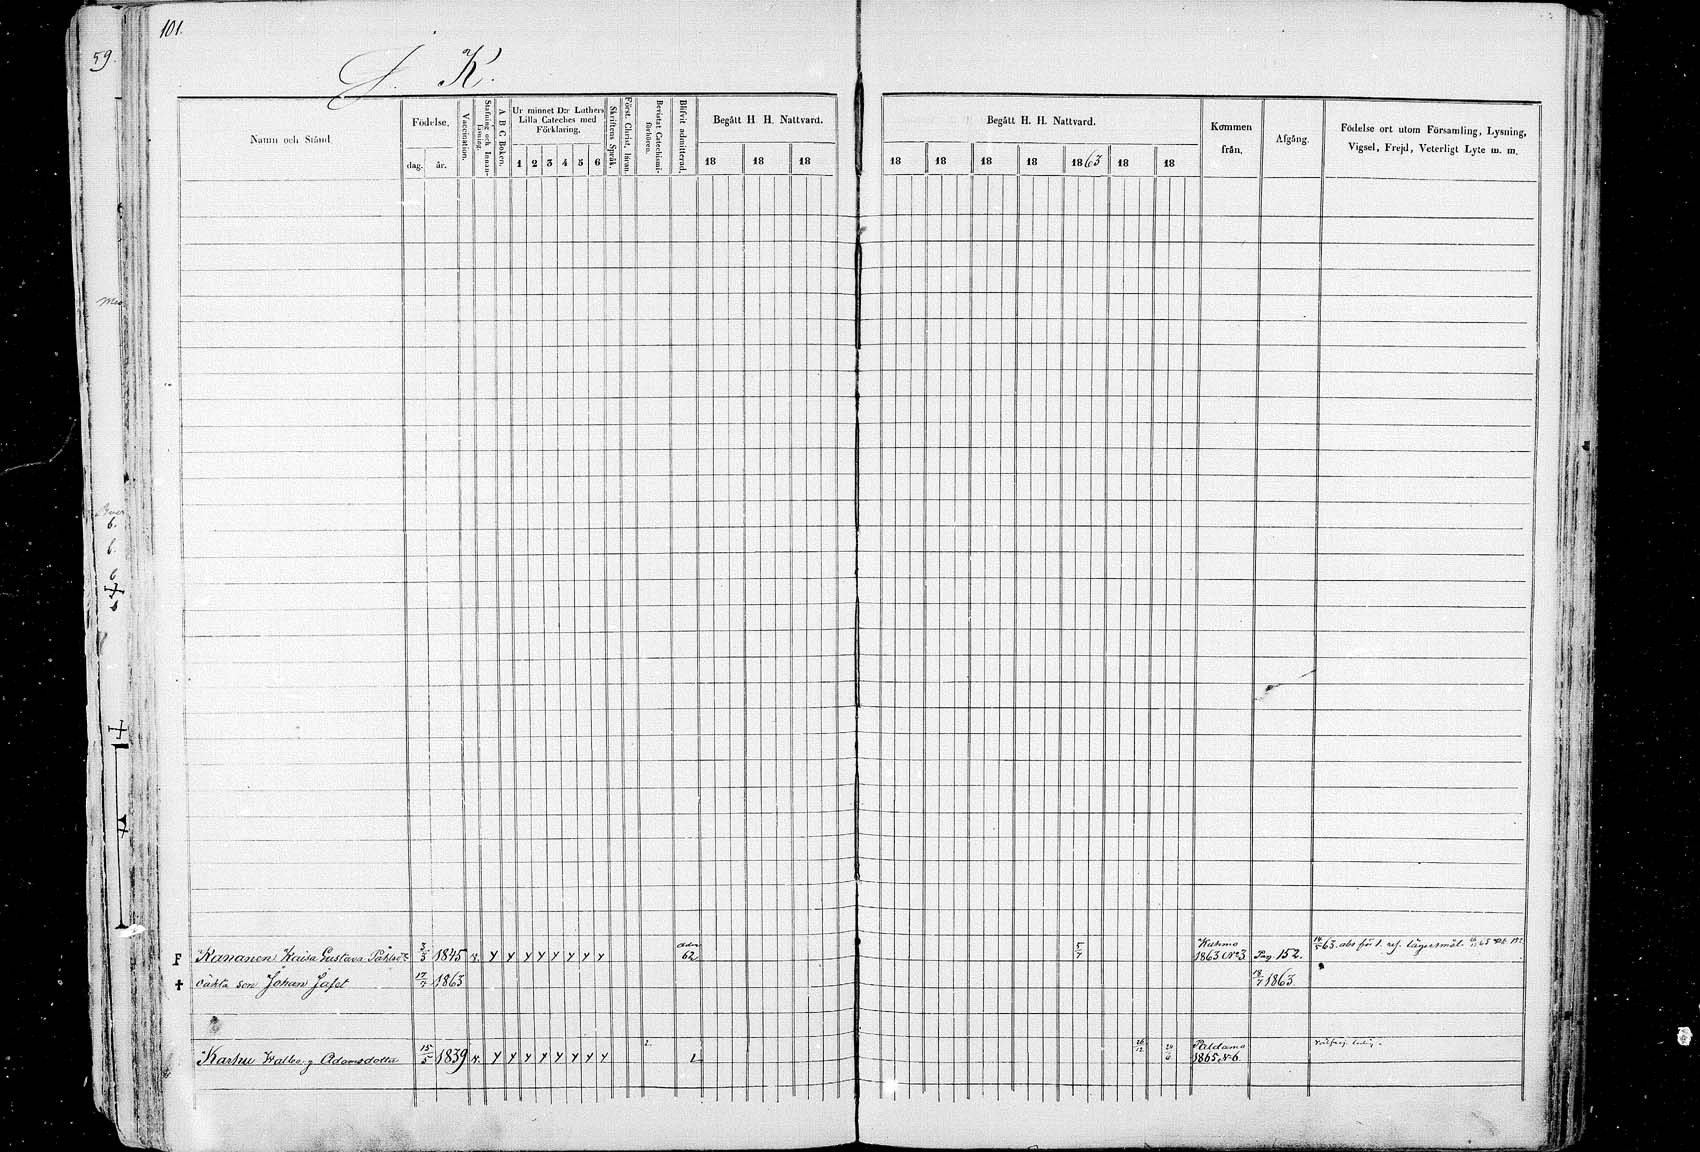 101.
59.
K.
Namn och Stånd.
Födelse.
dag. år.
Vaccination.
Stafning och Innanläsning.
A B C Boken.
Ur minnet D:r Luthers Lilla Cateches med Förklaring.
1 2 3 4 5 6
Skriftens Språk.
Först. Christ. läran.
Bevistat Catechismiförhören.
Blifvit admitterad.
Begått H H. Nattvard.
18 18 18
Begått H. H. Nattvard.
18 18 18 18 1863 18 18
Kommen från.
Afgång.
Födelse ort utom Församling, Lysning, Vigsel, Frejd, Veterligt Lyte m. m.
F Kananen Kaisa Gustava 3/3 1845 v. Y Y Y Y Y Y Y Y 62 5/7 Kuhmo 1863 No 3 Pag 152.
✝ oäkta son Johan Jafet 17/7 1863 18/7 1863.
Karhu Adamsdotter 15/5 1839 v. Y Y Y Y Y Y Y Y 26/12 Paldamo 1865 N 6.